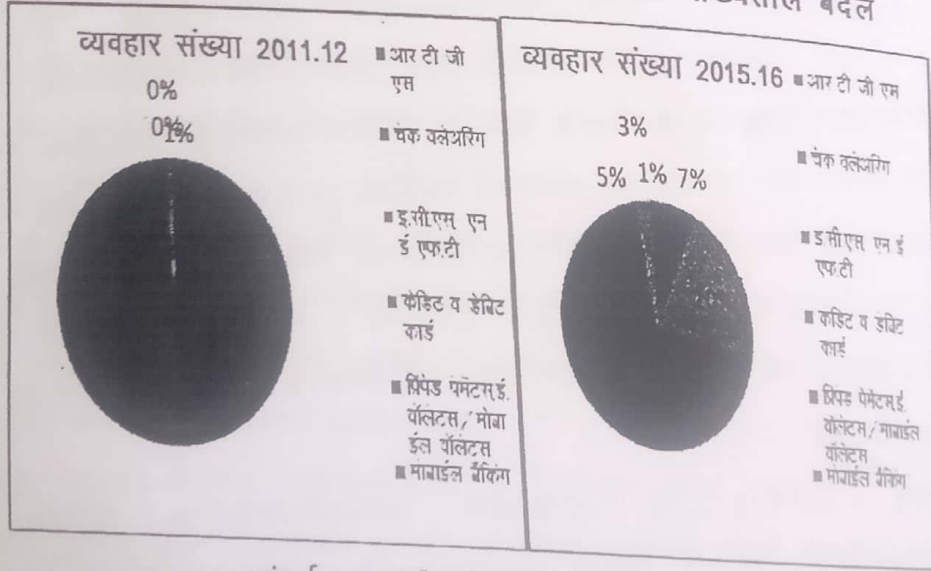 बदल
व्यवहार संख्या 2011.12
0%
0%
1%
■ आर टी जी
एस
■ चेक क्लेअरिंग
■ इ.सी.एस एन
ई एफ.टी
■ केडिट व डेबिट
कार्ड
■ प्रिपेड पेमेंटस् ई.
वॉलेटस/मोबा
ईल वॉलेटस
■ मोबाईल बँकिंग
व्यवहार संख्या 2015.16
3%
5% 1% 7%
■ आर टी जी एस
■ चेक क्लेअरिंग
■ इ.सी.एस एन ई
एफ.टी
■ कडिट व डेबिट
कार्ड
■ प्रिपेड पेमेंटस् ई.
वॉलेटस/मोबाईल
वॉलेटस
■ मोबाईल बँकिंग